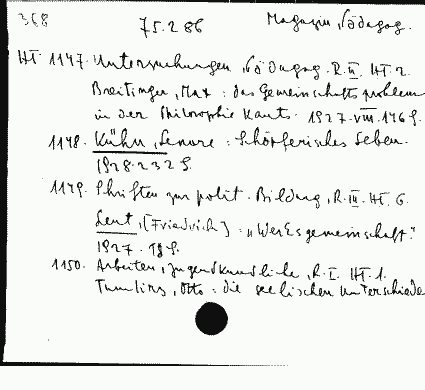 368 75.286 Magazin, Pädagog.
HT 1147. Untersuchungen, Pädagog. R. II. HT 2.
Breitinger, Max: das Gemeinschaftsproblem
in der Philosophie Kants. 1927. VIII. 146 S.
1148. Kühn, Lenore: Schöpferisches Leben.
1928. 232 S.
1149. Schriften zur polit. Bildung, R. III. HT. 6.
Lent, [Friedrich]:
1927. S.
1150. Arbeiten, jugendkundliche, R. I. HT 1.
Tumlirz, Otto: die seelischen Unterschiede